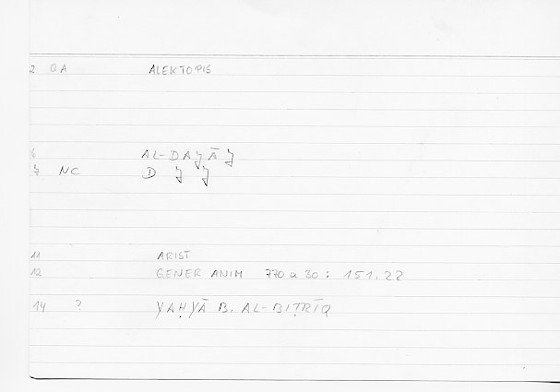 2 GA ALEKTOPIS
6 AL-DAJĀJ
7 NC D J J
11 ARIST
12 GENER ANIM 770 a 30 : 151.22
14 ? YAḤYĀ B. AL-BIṬRĪQ